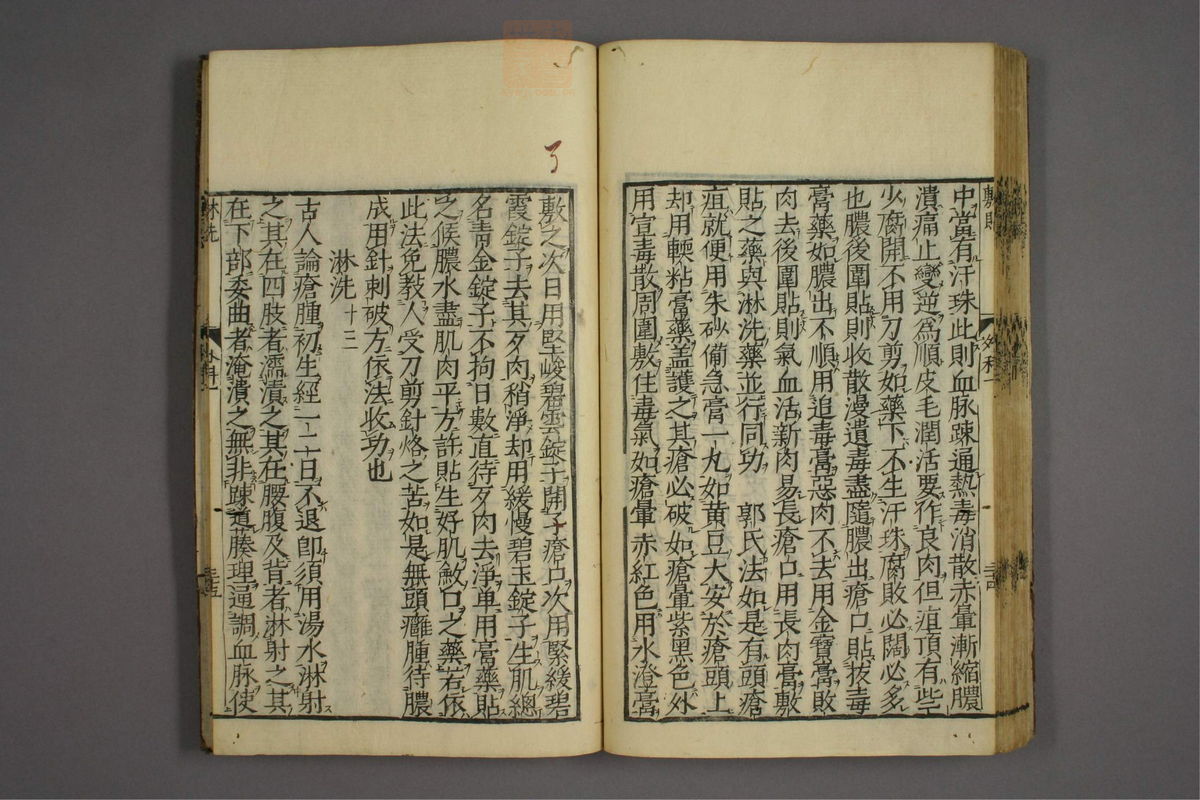 中當有汗珠此則血脉踈通熱毒消散赤暈漸縮膿
潰痛止變逆爲順皮毛潤活要作良肉但疽頂有些
少腐開不用刀剪如藥下不生汗珠腐敗必闊必多
也膿後圍貼則收散漫遺毒盡隨膿出瘡口貼拔毒
膏藥如膿出不順用追毒膏惡肉不去用金寶膏敗
肉去後圍貼則氣血活新肉易長瘡口用長肉膏敷
貼之藥與淋洗藥並行同功 郭氏法如是有頭瘡
疽就便用朱砂備急膏一丸如黄豆大安於瘡頭上
却用輭粘膏藥盖護之其瘡必破如瘡暈紫黑色外
用宣毒散周圍敷住毒氣如瘡暈赤紅色用水澄膏
敷之次日用堅峻碧雲錠子開子瘡口次用緊緩碧
霞錠子去其歹肉稍淨却用緩慢碧玉錠子生肌總
名青金錠子不拘日數直待歹肉去淨单用膏藥貼
之候膿水盡肌肉平方許貼生好肌斂口之藥若依
此法免教人受刀剪針烙之苦如是無頭癰腫待膿
成用針刺破方依法收功也
淋洗十三
古人論瘡腫初生經一二日不退即須用湯水淋射
之其在四肢者濡漬之其在腰腹及背者淋射之其
在下部委曲者淹漬之無非踈導腠理通調血脉使
淋洗